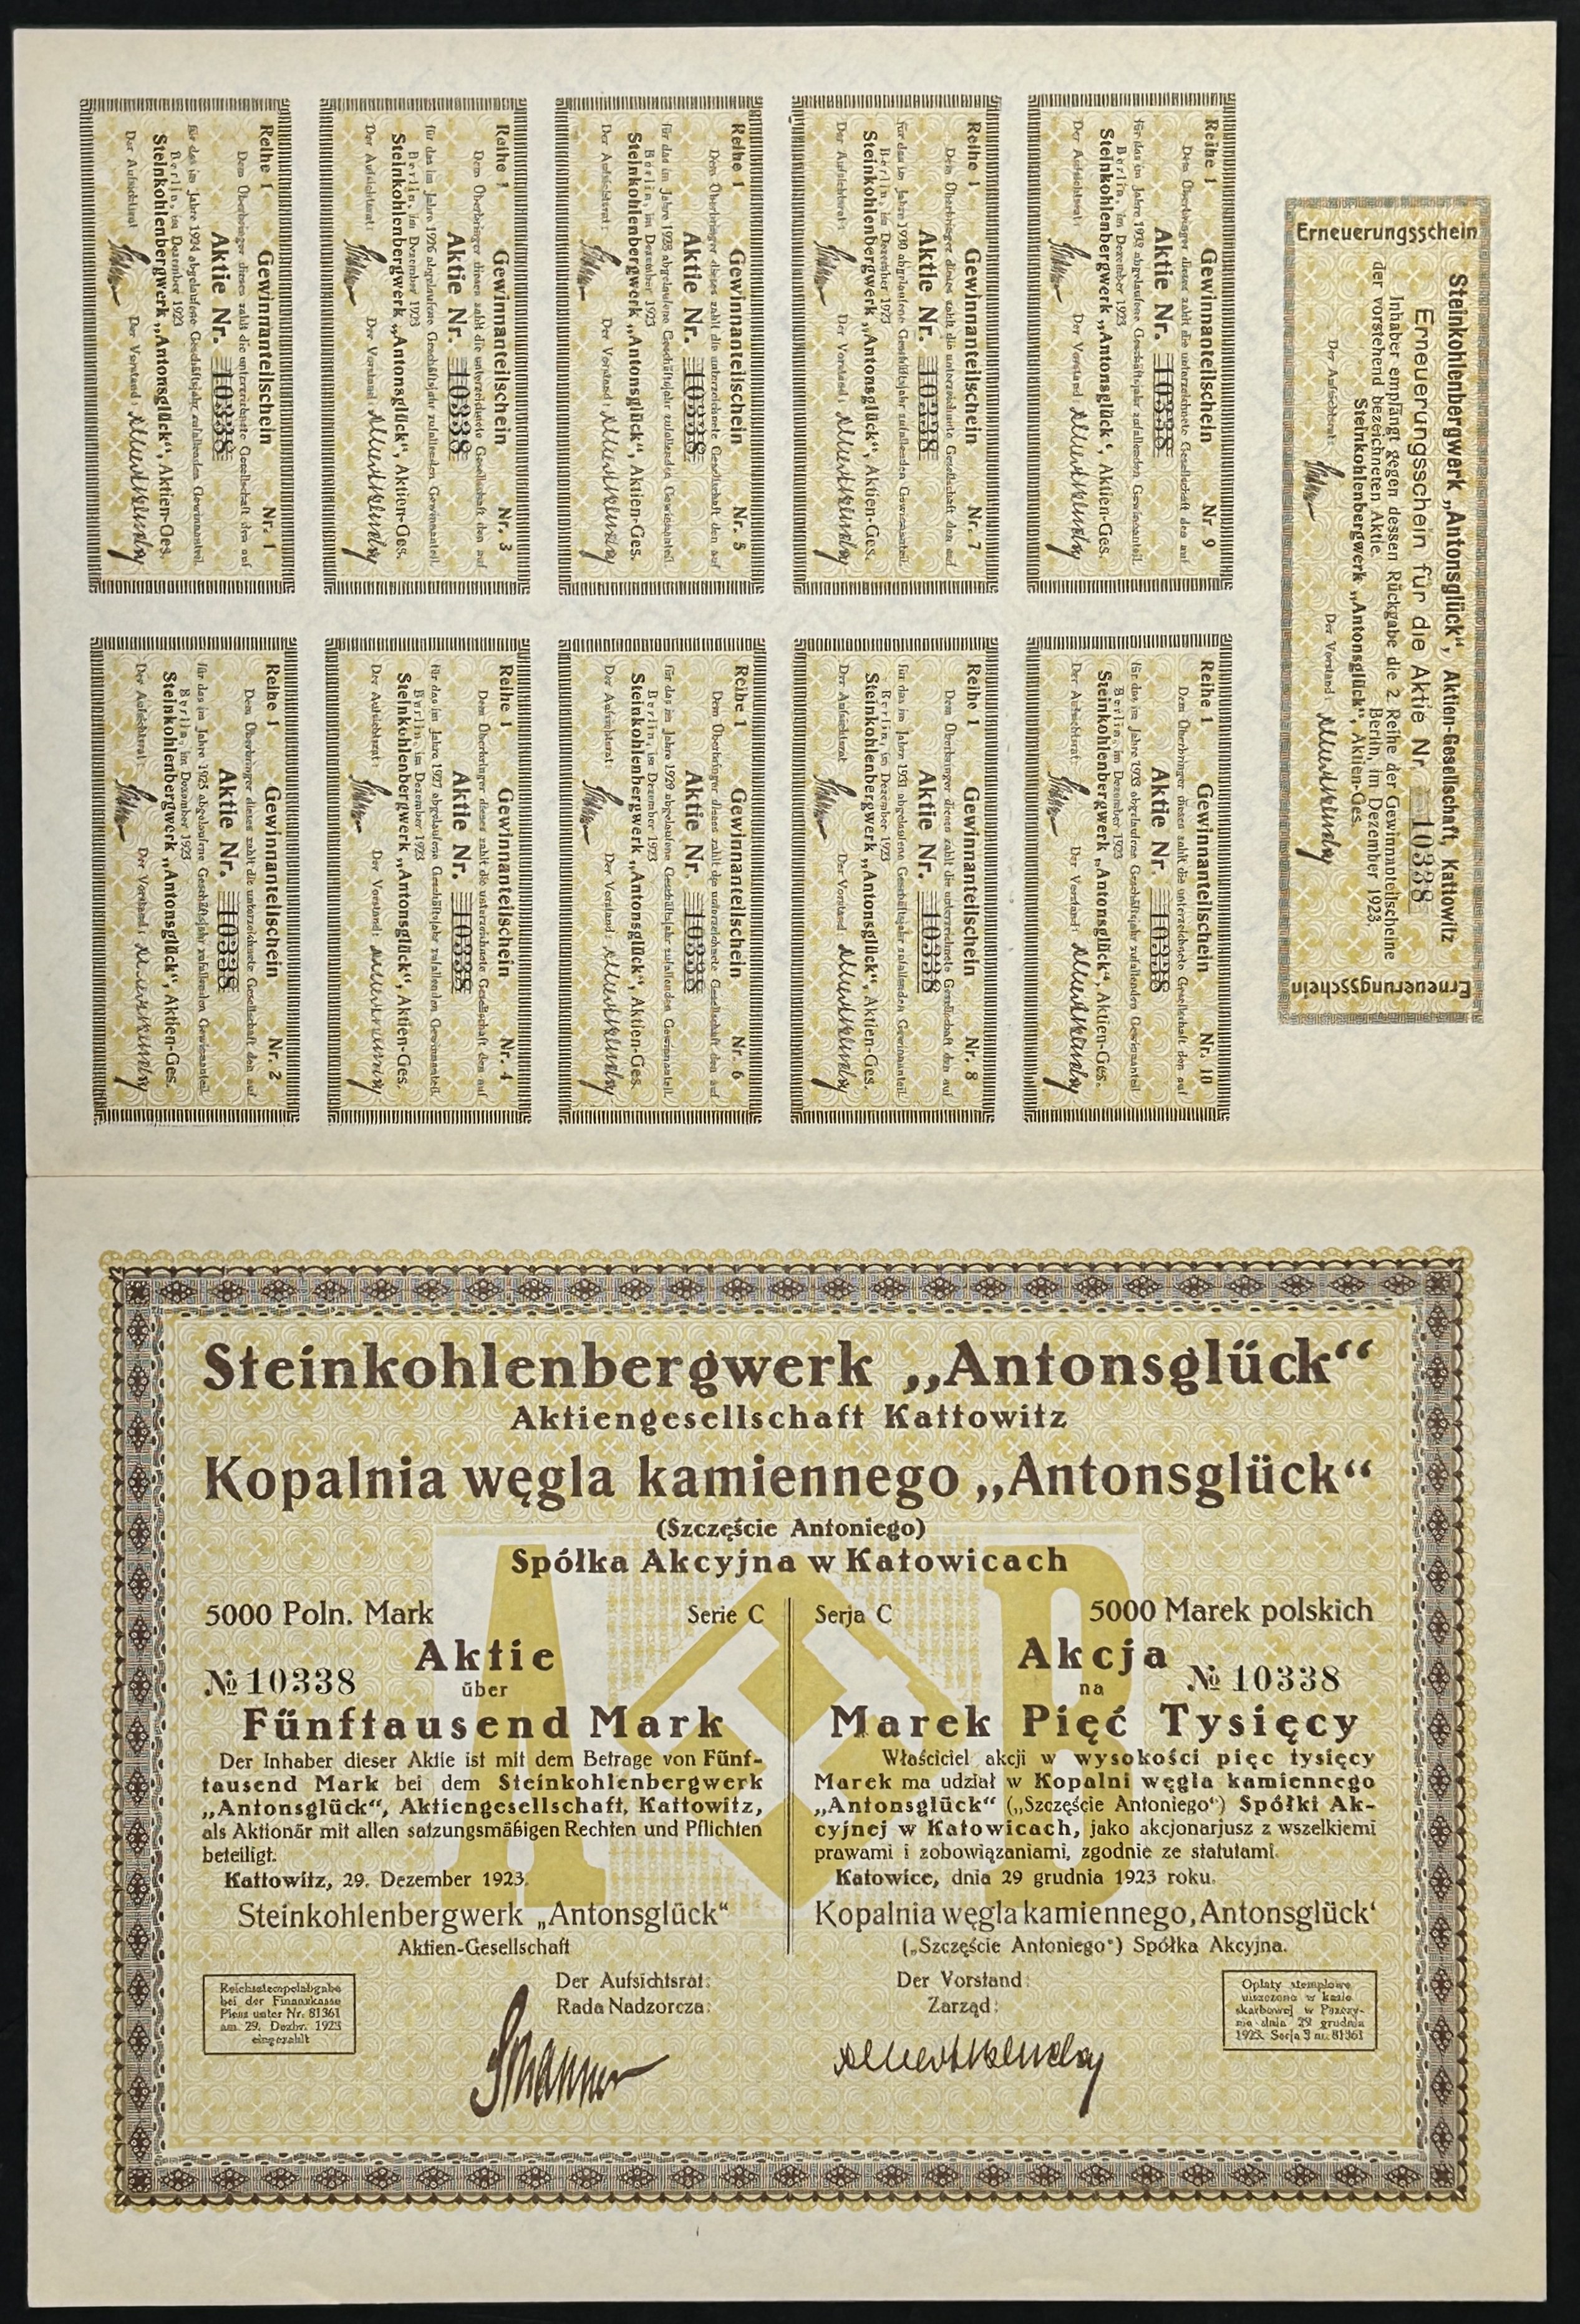 Reihe 1 Gewinnanteilschein Nr. 1
Dem Überbringer dieses zahlt die unterzeichnete Gesellschaft den auf
Aktie Nr. 10338
für das im Jahre 1924 abgelaufene Geschäftsjahr zufallenden Gewinnanteil.
Berlin, im Dezember 1923
Steinkohlenbergwerk „Antonsglück“, Aktien-Ges.
Der Aufsichtsrat: Der Vorstand:
Reihe 1 Gewinnanteilschein Nr. 3
Dem Überbringer dieses zahlt die unterzeichnete Gesellschaft den auf
Aktie Nr. 10338
für das im Jahre 1926 abgelaufene Geschäftsjahr zufallenden Gewinnanteil.
Berlin, im Dezember 1923
Steinkohlenbergwerk „Antonsglück“, Aktien-Ges.
Der Aufsichtsrat: Der Vorstand:
Reihe 1 Gewinnanteilschein Nr. 5
Dem Überbringer dieses zahlt die unterzeichnete Gesellschaft den auf
Aktie Nr. 10338
für das im Jahre 1928 abgelaufene Geschäftsjahr zufallenden Gewinnanteil.
Berlin, im Dezember 1923
Steinkohlenbergwerk „Antonsglück“, Aktien-Ges.
Der Aufsichtsrat: Der Vorstand:
Reihe 1 Gewinnanteilschein Nr. 7
Dem Überbringer dieses zahlt die unterzeichnete Gesellschaft den auf
Aktie Nr. 10338
für das im Jahre 1930 abgelaufene Geschäftsjahr zufallenden Gewinnanteil.
Berlin, im Dezember 1923
Steinkohlenbergwerk „Antonsglück“, Aktien-Ges.
Der Aufsichtsrat: Der Vorstand:
Reihe 1 Gewinnanteilschein Nr. 9
Dem Überbringer dieses zahlt die unterzeichnete Gesellschaft den auf
Aktie Nr. 10338
für das im Jahre 1932 abgelaufene Geschäftsjahr zufallenden Gewinnanteil.
Berlin, im Dezember 1923
Steinkohlenbergwerk „Antonsglück“, Aktien-Ges.
Der Aufsichtsrat: Der Vorstand:
Reihe 1 Gewinnanteilschein Nr. 2
Dem Überbringer dieses zahlt die unterzeichnete Gesellschaft den auf
Aktie Nr. 10338
für das im Jahre 1925 abgelaufene Geschäftsjahr zufallenden Gewinnanteil.
Berlin, im Dezember 1923
Steinkohlenbergwerk „Antonsglück“, Aktien-Ges.
Der Aufsichtsrat: Der Vorstand:
Reihe 1 Gewinnanteilschein Nr. 4
Dem Überbringer dieses zahlt die unterzeichnete Gesellschaft den auf
Aktie Nr. 10338
für das im Jahre 1927 abgelaufene Geschäftsjahr zufallenden Gewinnanteil.
Berlin, im Dezember 1923
Steinkohlenbergwerk „Antonsglück“, Aktien-Ges.
Der Aufsichtsrat: Der Vorstand:
Reihe 1 Gewinnanteilschein Nr. 6
Dem Überbringer dieses zahlt die unterzeichnete Gesellschaft den auf
Aktie Nr. 10338
für das im Jahre 1929 abgelaufene Geschäftsjahr zufallenden Gewinnanteil.
Berlin, im Dezember 1923
Steinkohlenbergwerk „Antonsglück“, Aktien-Ges.
Der Aufsichtsrat: Der Vorstand:
Reihe 1 Gewinnanteilschein Nr. 8
Dem Überbringer dieses zahlt die unterzeichnete Gesellschaft den auf
Aktie Nr. 10338
für das im Jahre 1931 abgelaufene Geschäftsjahr zufallenden Gewinnanteil.
Berlin, im Dezember 1923
Steinkohlenbergwerk „Antonsglück“, Aktien-Ges.
Der Aufsichtsrat Der Vorstand:
Reihe 1 Gewinnanteilschein Nr. 10
Dem Überbringer dieses zahlt die unterzeichnete Gesellschaft den auf
Aktie Nr. 10338
für das im Jahre 1933 abgelaufene Geschäftsjahr zufallenden Gewinnanteil
Berlin, im Dezember 1923
Steinkohlenbergwerk „Antonsglück“, Aktien-Ges.
Der Aufsichtsrat: Der Vorstand:
Erneuerungsschein
Steinkohlenbergwerk „Antonsglück“, Aktien-Gesellschaft, Kattowitz
Erneuerungsschein für die Aktie Nr. 10338
Inhaber empfängt gegen dessen Rückgabe die 2. Reihe der Gewinnanteilscheine
der vorstehend bezeichneten Aktie. Berlin, im Dezember 1923.
Steinkohlenbergwerk „Antonsglück“, Aktien-Ges.
Der Aufsichtsrat: Der Vorstand
Erneuerungsschein
Steinkohlenbergwerk „Antonsglück“
Aktiengesellschaft Kattowitz
Kopalnia węgla kamiennego „Antonsglück“
(Szczęście Antoniego)
Spółka Akcyjna w Katowicach
5000 Poln. Mark Serie C
Aktie
№ 10338
über
Fünftausend Mark
Der Inhaber dieser Aktie ist mit dem Betrage von Fünf-
tausend Mark bei dem Steinkohlenbergwerk
„Antonsglück“, Aktiengesellschaft, Kattowitz,
als Aktionär mit allen satzungsmäßigen Rechten und Pflichten
beteiligt.
Kattowitz, 29. Dezember 1923.
Steinkohlenbergwerk „Antonsglück“
Aktien-Gesellschaft
Serja C 5000 Marek polskich
Akcja
№ 10338
na
Marek Pięć Tysięcy
Właściciel akcji w wysokości pięc tysięcy
Marek ma udział w Kopalni węgla kamiennego
„Antonsglück“ („Szczęście Antoniego“) Spółki Ak-
cyjnej w Katowicach, jako akcjonarjusz z wszelkiemi
prawami i zobowiązaniami, zgodnie ze statutami.
Katowice, dnia 29 grudnia 1923 roku.
Kopalnia węgla kamiennego‚Antonsglück‘
(„Szczęście Antoniego“) Spółka Akcyjna.
Der Aufsichtsrat:
Rada Nadzorcza:
Der Vorstand:
Zarząd:
Reichsstempelabgabe
bei der Finanzkasse
Pless unter Nr. 81361
am 29. Dezbr. 1923
eingezahlt
Opłaty stemplowe
uiszczono w kasie
skarbowej w Pszczy-
nie dnia 29 grudnia
1923. Serja 3 nr. 81361
A B